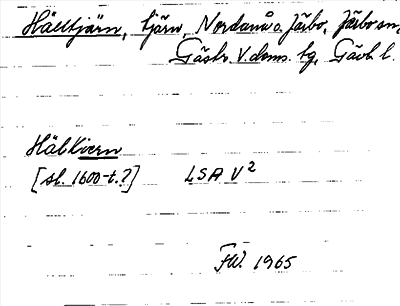 Hälltjärn, tjärn, Nordanå o. Järbo, Järbo sn,
Gästr. V. doms. tg, Gävl. l.
Hälkiern
[sl. 1600-t.?] LSA V²
F.W. 1965